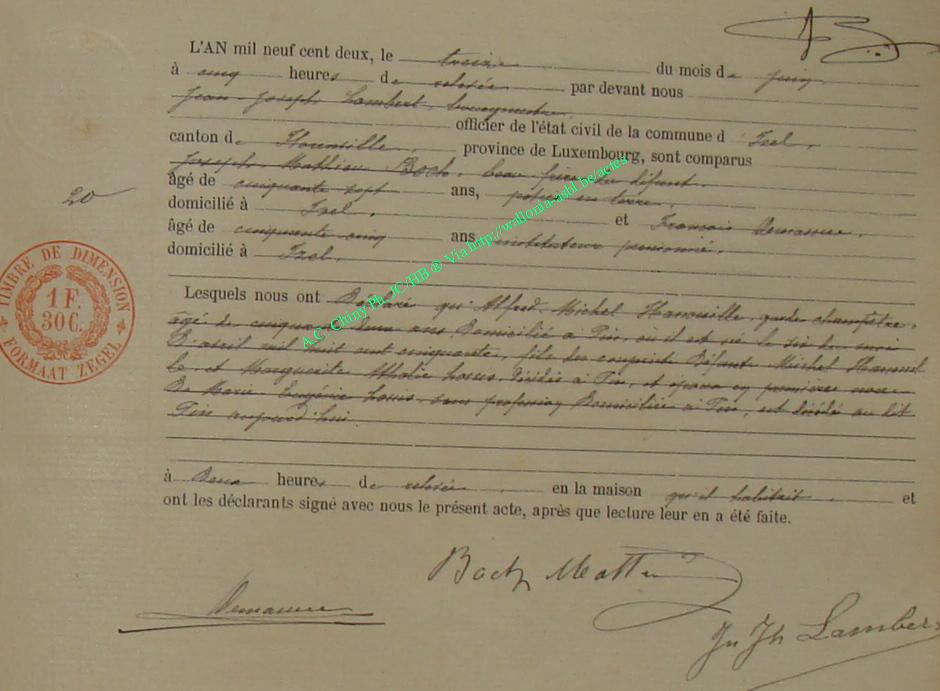 L'AN mil neuf cent deux, le treize du mois de juin
à cinq heures de relevée par devant nous
Jean-Joseph Lambert, bourgmestre
officier de l'état civil de la commune d'Izel,
canton de Florenville, province de Luxembourg, sont comparus
Joseph Mathieu Bock, beau frère du défunt,
âgé de cinquante sept ans, potier en terre,
domicilié à Izel, et François Demasure,
âgé de cinquante cinq ans instituteur pensionné,
domicilié à Izel,
Lesquels nous ont déclaré qu'Alfred Michel Hanouille, garde champêtre,
âgé de cinquante deux ans domicilié à Pin, où il est né le six du mois
d'avril mil huit cent cinquante, fils des conjoints défunts Michel
et Marguerite décédés à Pin, et époux en premières noces
de Marie Eugénie sans profession domiciliée à Pin, est décédé au dit
Pin aujourd'hui
à deux heures de relevée, en la maison qu'il habitait, et
ont les déclarants signé avec nous le présent acte, après que lecture leur en a été faite.
20
TIMBRE DE DIMENSION
1 F.
30 C.
FORMAAT ZEGEL
A.C. Chiny Ph. JC/HB ® Via http://wallonia-asbl.be/actes
Bock Matt
Demasure
Jn Jh Lambert